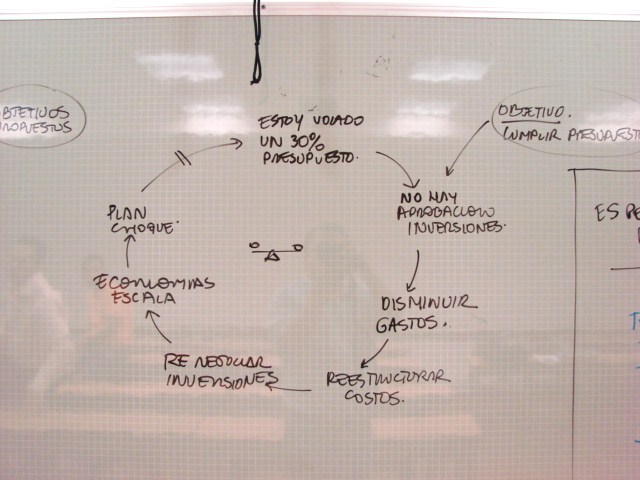 OBJETIVOS
PROPUESTOS
ESTOY VOLADO
UN 30%
PRESUPUESTO.
OBJETIVO.
CUMPLIR PRESUPUESTO
NO HAY
APROBACION
INVERSIONES.
DISMINUIR
GASTOS.
REESTRUCTURAR
COSTOS.
RE NEGOCIAR
INVERSIONES
ECONOMIAS
ESCALA
PLAN
CHOQUE.